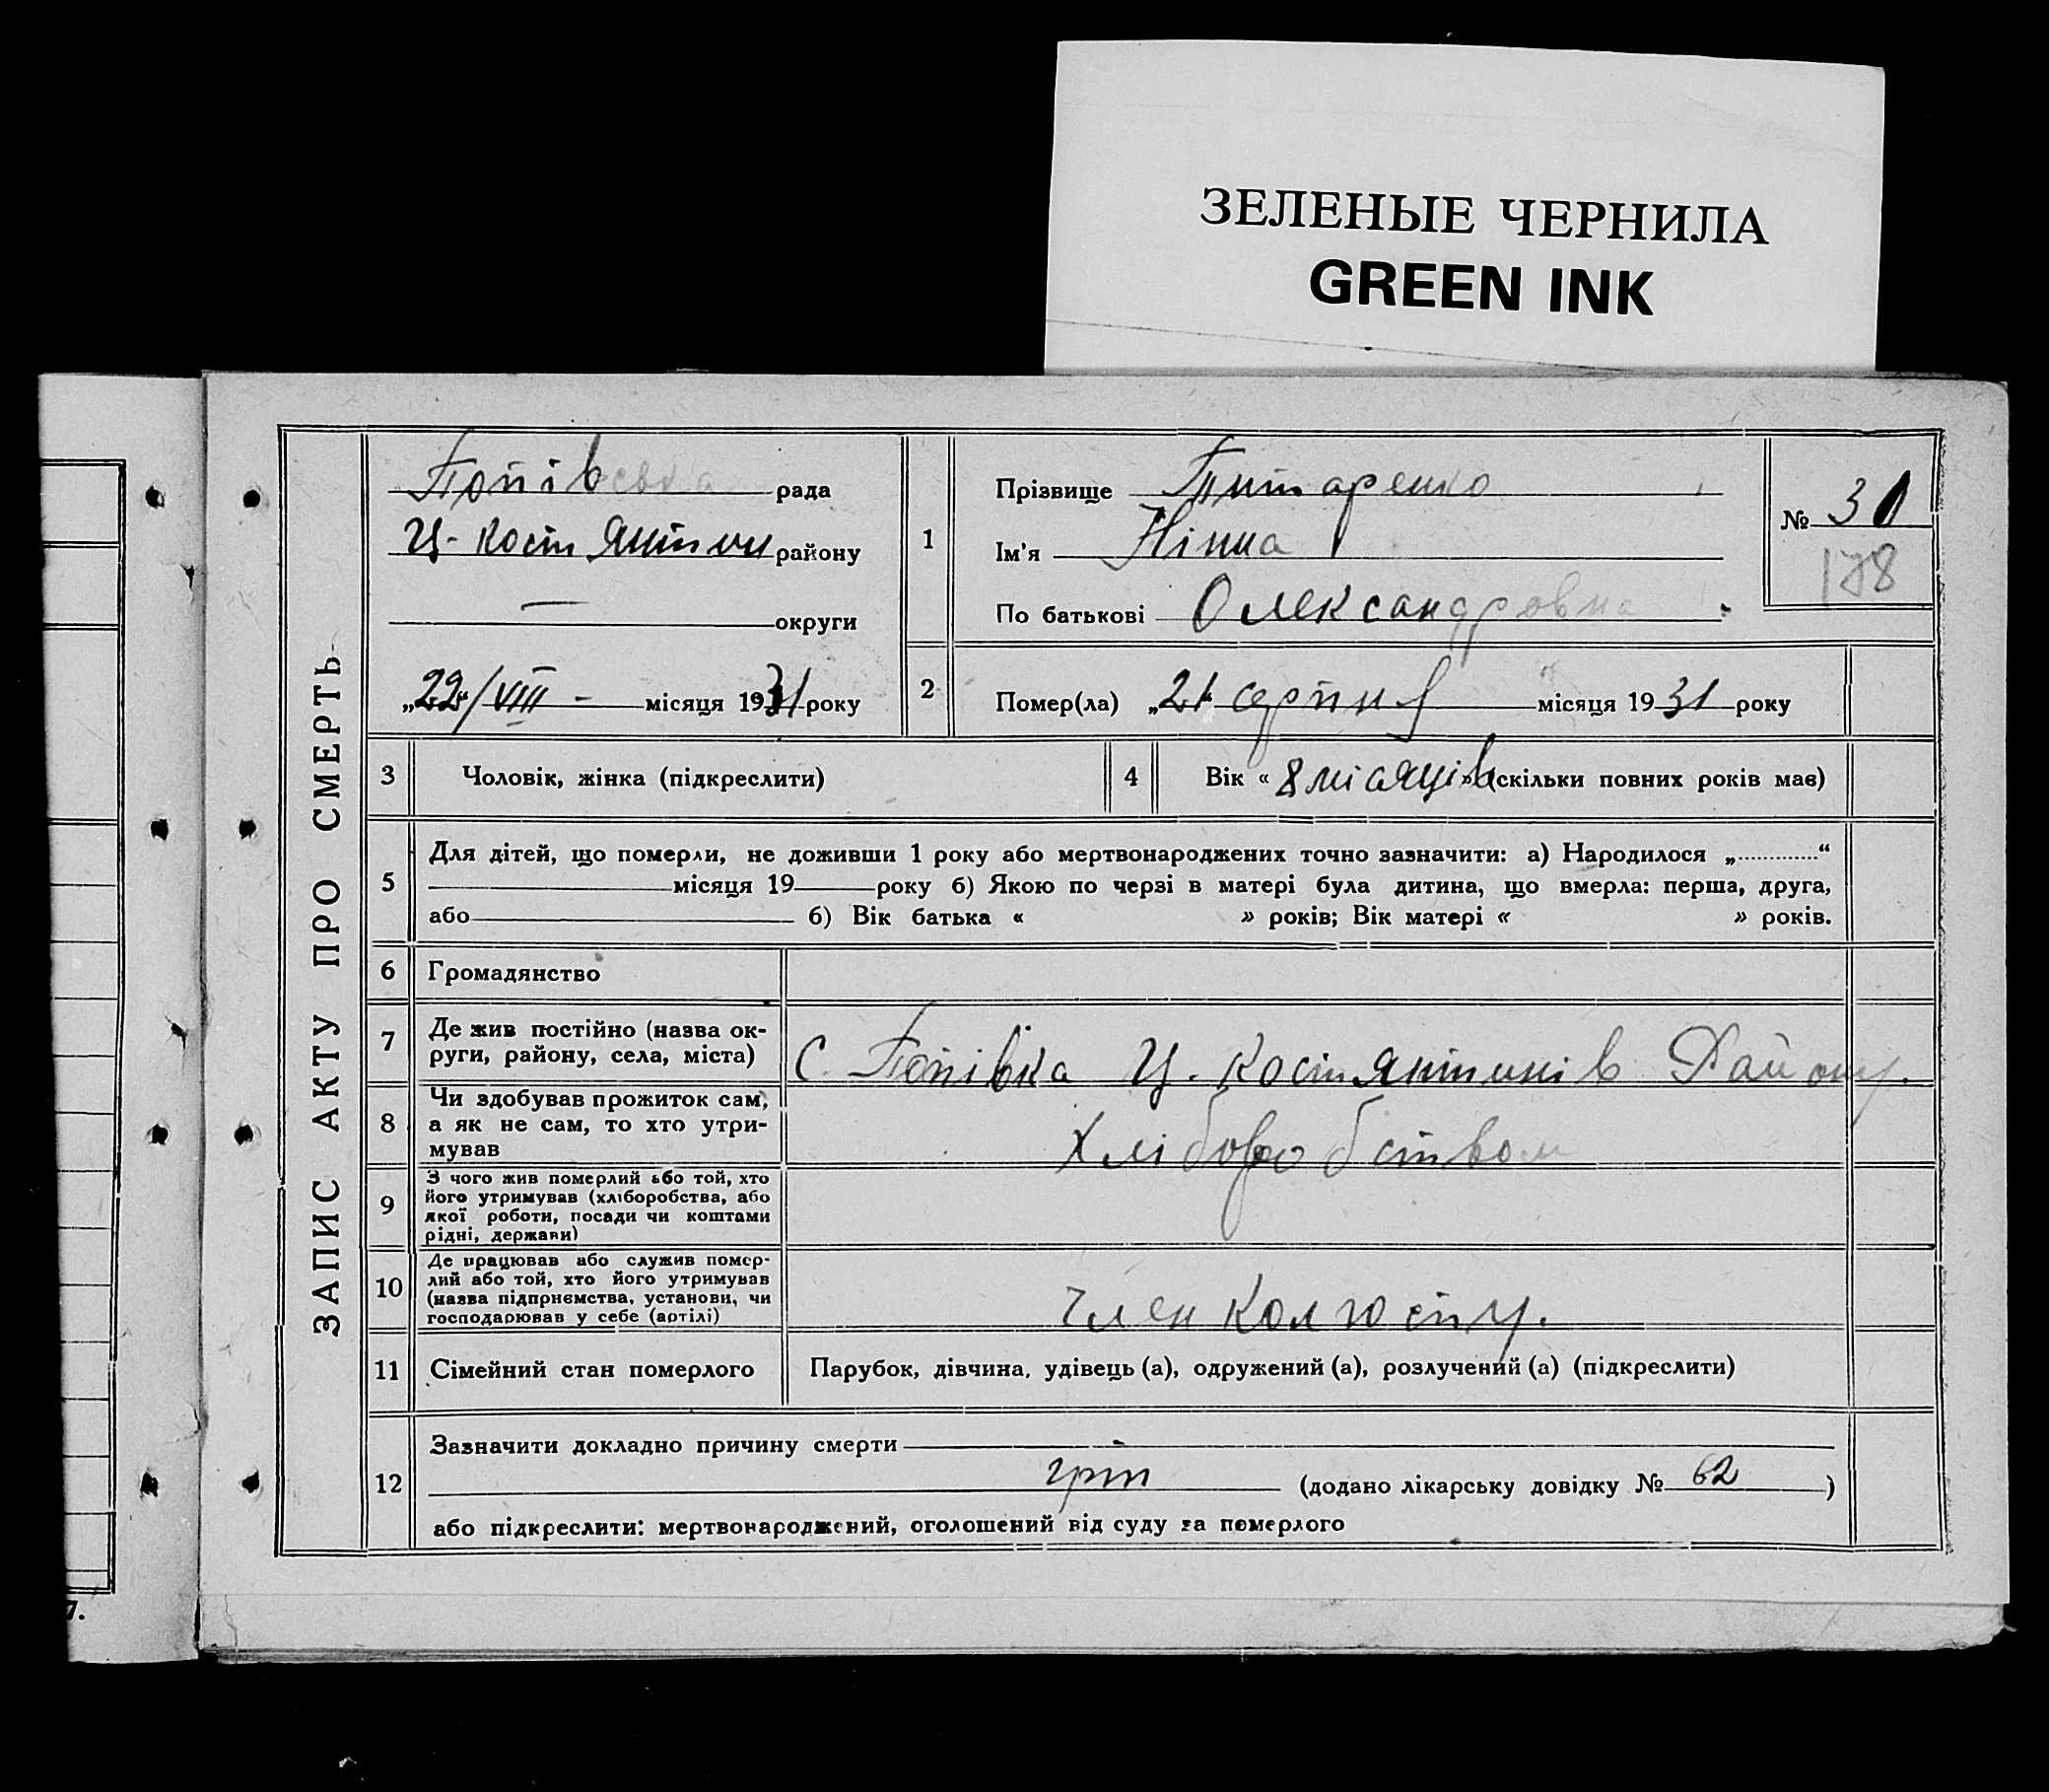 ЗЕЛЕНЫЕ ЧЕРНИЛА
GREEN INK
ЗАПИС АКТУ ПРО СМЕРТЬ
Попівська рада
Ц-Костянтин району
— округи
„22“/VIII - місяця 1931 року
1
Прізвище Титаренко
Ім'я Нінна
По батькові Олександровна
№ 31
178
2 Помер(ла) „21“ серпня місяця 1931 року
3 Чоловік, жінка (підкреслити)
4 Вік « 8 місяців » (скільки повних років має)
5 Для дітей, що померли, не доживши 1 року або мертвонароджених точно зазначити: а) Народилося „............“
місяця 19 року б) Якою по черзі в матері була дитина, що вмерла: перша, друга,
або б) Вік батька « » років; Вік матері « » років.
6 Громадянство
7 Де жив постійно (назва ок-
руги, району, села, міста)
С. Попівка Ц. Костянтинів Району.
8 Чи здобував прожиток сам,
а як не сам, то хто утри-
мував
Хліборобством
9 З чого жив померлий або той, хто
його утримував (хліборобства, або
якої роботи, посади чи коштами
рідні, держави)
10 Де працював або служив помер-
лий або той, хто його утримував
(назва підприємства, установи, чи
господарював у себе (артілі)
Член колгоспу.
11 Сімейний стан померлого Парубок, дівчина, удівець (а), одружений (а), розлучений (а) (підкреслити)
12 Зазначити докладно причину смерти
гріп (додано лікарську довідку № 62 )
або підкреслити: мертвонароджений, оголошений від суду за померлого
7.